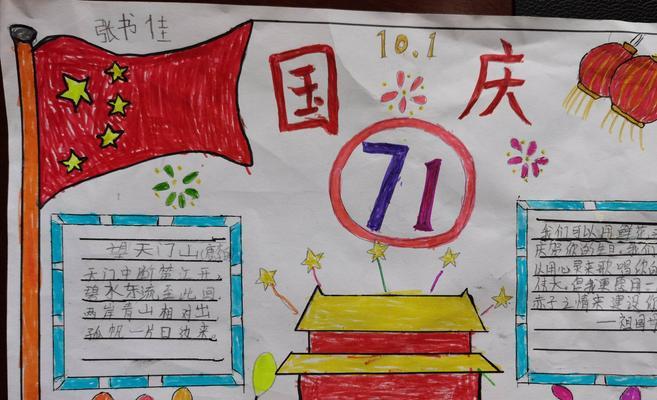 张书佳
10.1
国庆
71
望天门山
天门中断楚江开，
碧水东流至此回
两岸青山相对出
孤帆一片日边来。
我们可以用鲜花
庆贺你的生日，我们
从用心里来歌唱你的
伟大，但我更愿用一
赤子之情来建设你
——祖国